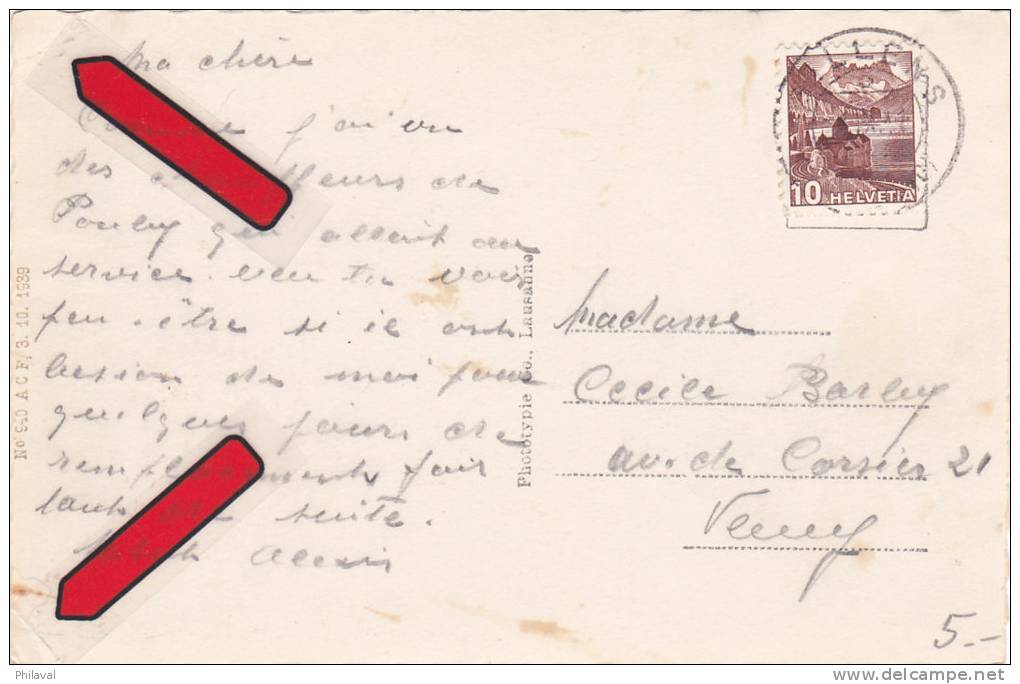 Ma chère
j'ai vu
des
Pully qui allait au
service veu tu voir
peu-être si il ont
besion de moi pour
quelques jours de
tout de suite.
Alexis
No 940 A C F. 3. 10. 1939
Phototypie Co., Lausanne
LLENS
10 HELVETIA
Madame
Cecile Barbey
av. de Corsier 21
Vevey
5.-
Philaval
www.delcampe.net